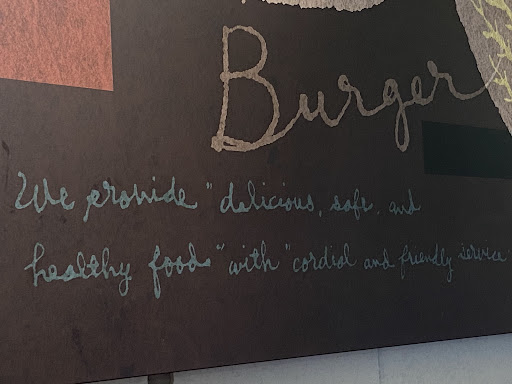 Burger
We provide "delicious, safe, and
healthy foods" with "cordial and friendly service"